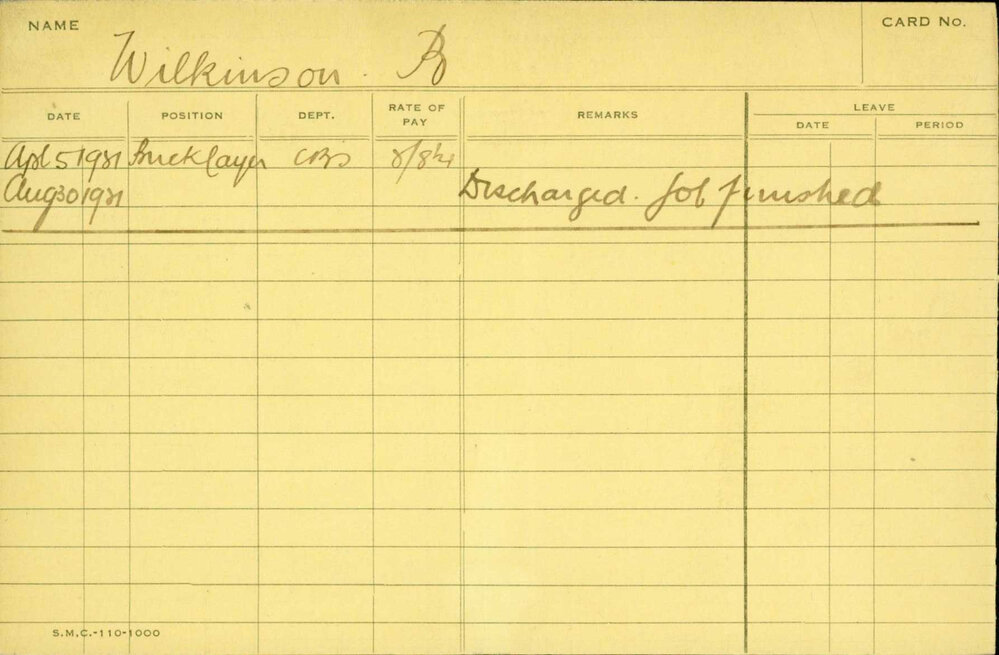 NAME
CARD No.
Wilkinson. R
DATE POSITION DEPT. RATE OF PAY REMARKS LEAVE
DATE PERIOD
Apl 5 1921 Bricklayer
Aug 30 1921 Discharged. Job finished
S.M.C.-110-1000